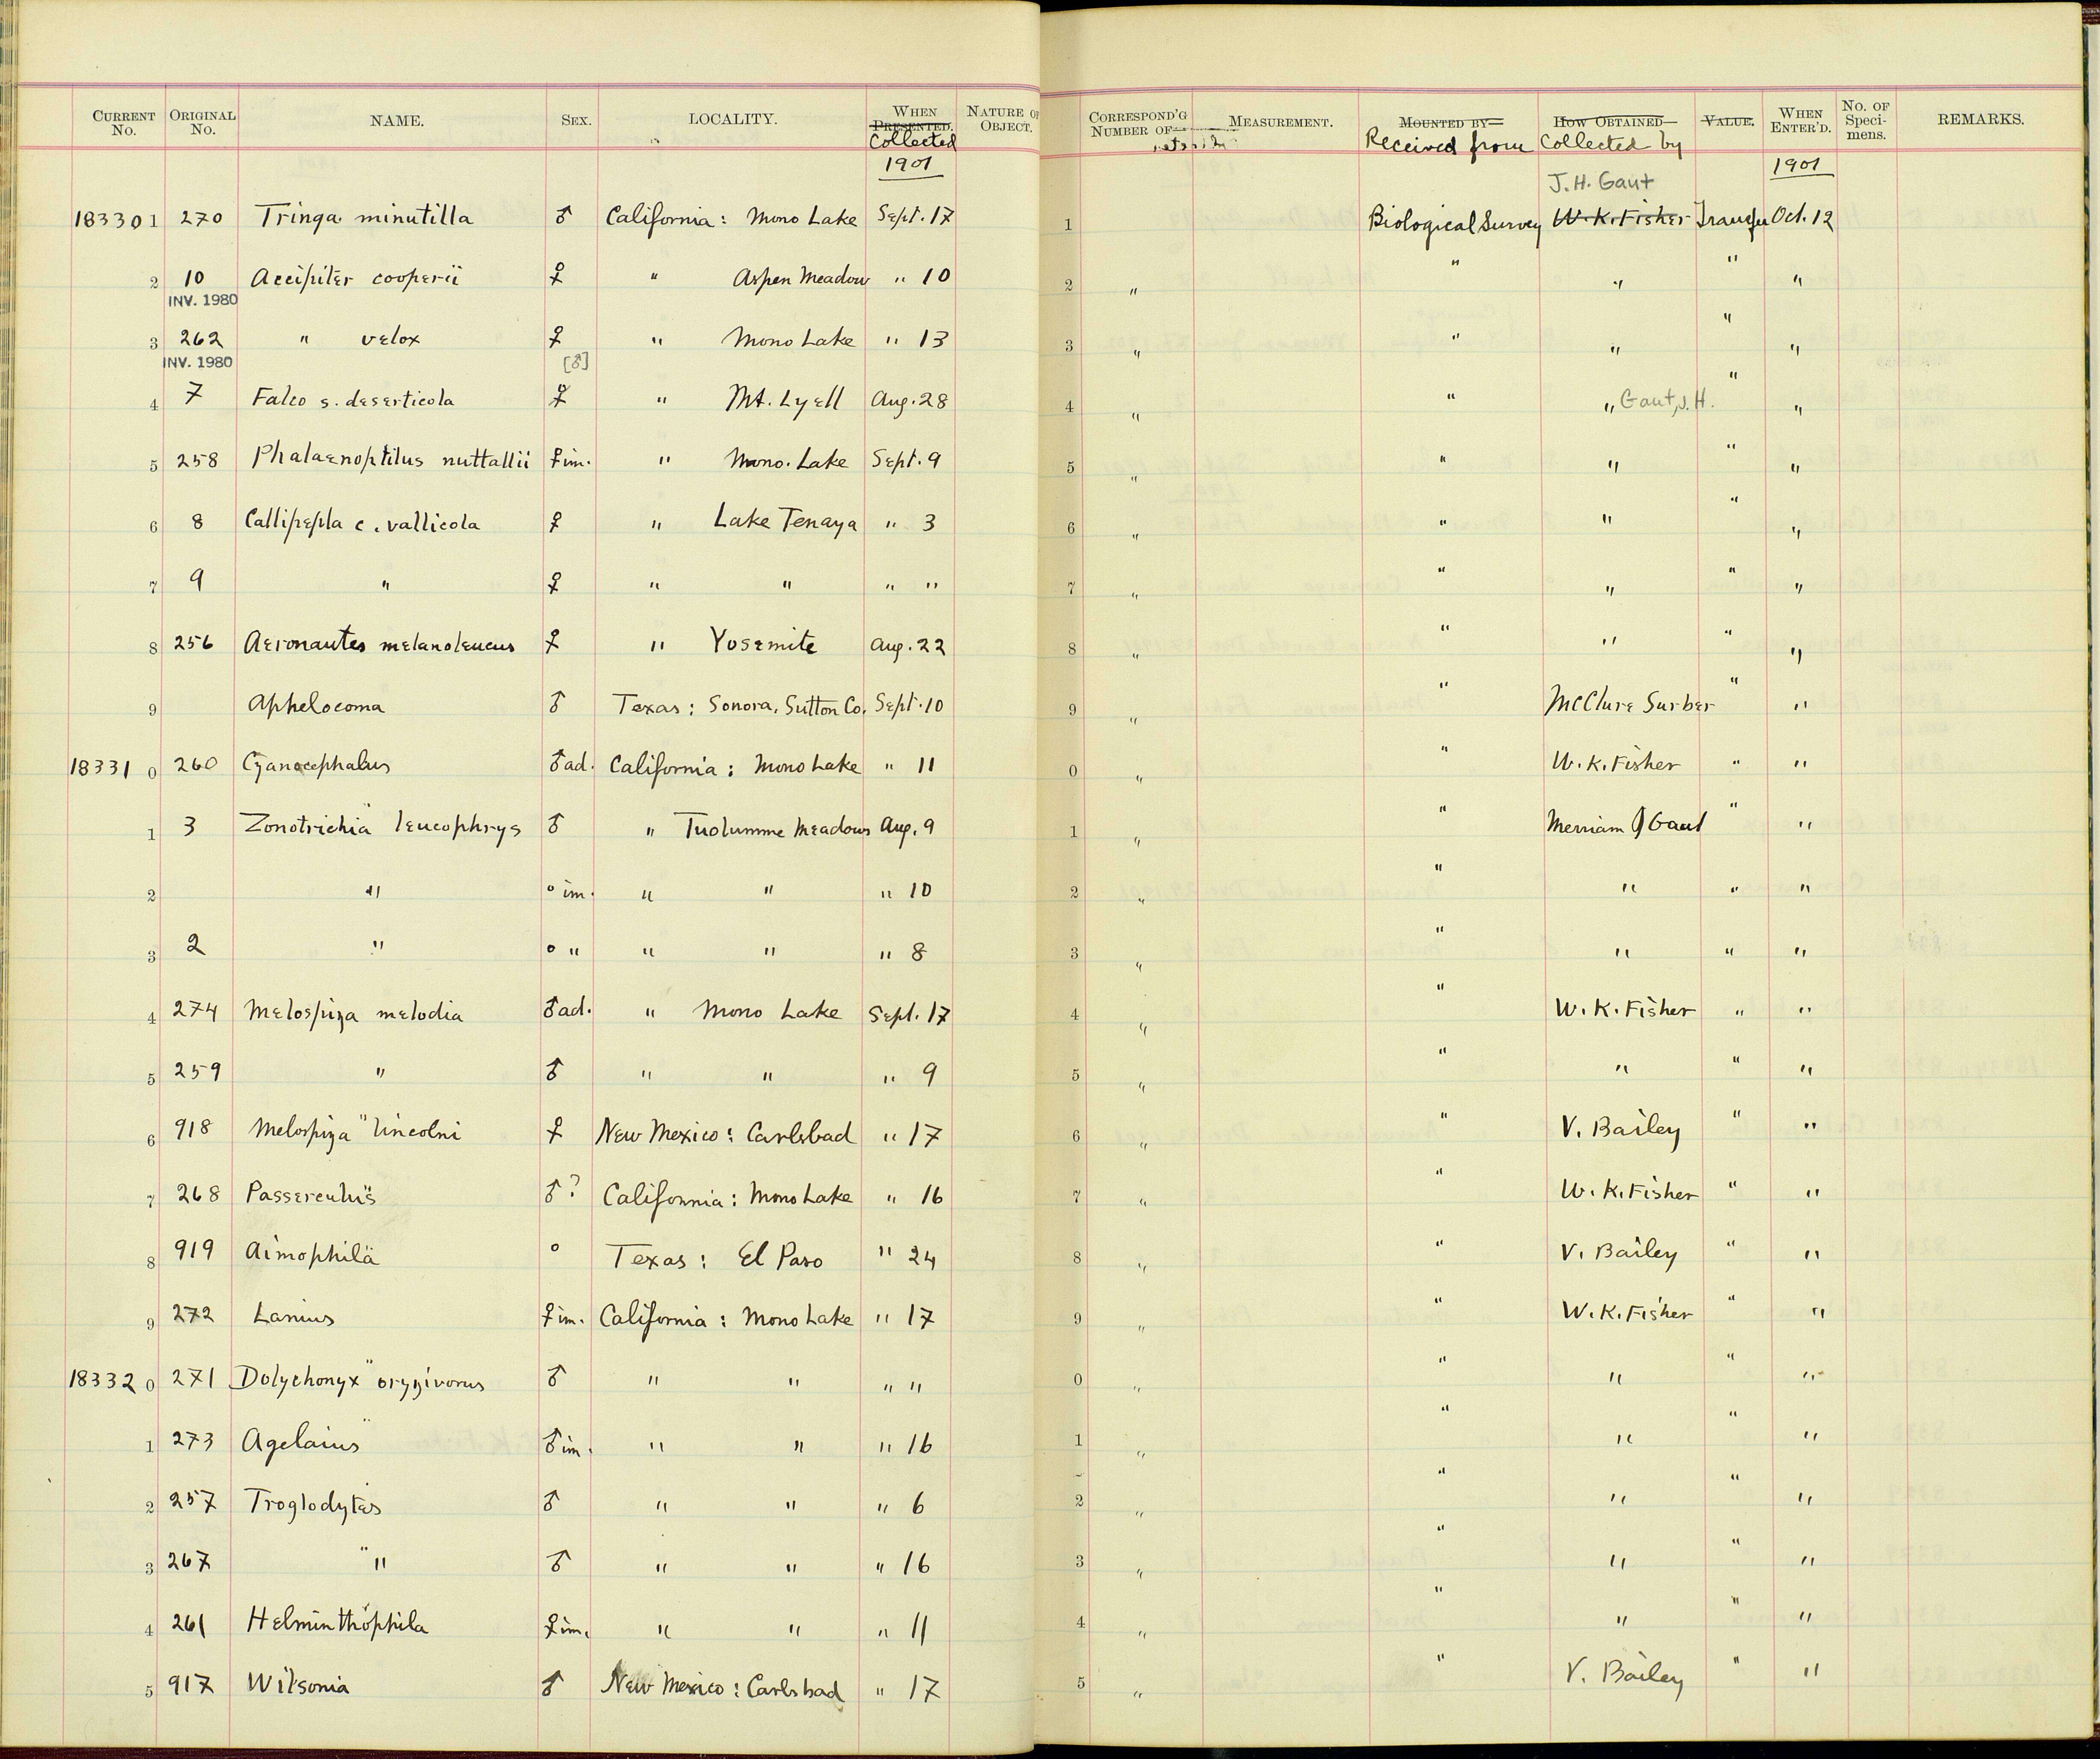 CURRENT No. ORIGINAL No. NAME. SEX. LOCALITY. WHEN PRESENTED. Collected NATURE OF OBJECT. CORRESPOND'G NUMBER OF MEASUREMENT. MOUNTED BY Received from HOW OBTAINED Collected by VALUE. WHEN ENTER'D. No. OF Speci-mens. REMARKS.
1901 1901
J.H. Gaut
183301 270 Tringa minutilla ♂ California: Mono Lake Sept. 17 1 Biological Survey W.K. Fisher Transfer Oct. 12
2 10 Accipiter cooperii ♀ " Aspen Meadow " 10 2 " " " " "
INV. 1980
3 262 " velox ♀ " Mono Lake " 13 3 " " " " "
INV. 1980 [♂]
4 7 Falco s. deserticola ♀ " Mt. Lyell Aug. 28 4 " " " Gaut, J.H. " "
5 258 Phalaenoptilus nuttallii ♀ im. " Mono. Lake Sept. 9 5 " " " " "
6 8 Callipepla c. vallicola ♀ " Lake Tenaya " 3 6 " " " " "
7 9 " ♀ " " " " 7 " " " " "
8 256 Aeronautes melanoleucus ♀ " Yosemite Aug. 22 8 " " " " "
9 Aphelocoma ♂ Texas: Sonora, Sutton Co. Sept. 10 9 " " McClure Surber " "
183310 260 Cyanocephalus ♂ ad. California: Mono Lake " 11 0 " " W.K. Fisher " "
1 3 Zonotrichia leucophrys ♂ " Tuolumne Meadows Aug. 9 1 " " Merriam & Gaut " "
2 " o im. " " " 10 2 " " " " "
3 2 " o " " " " 8 3 " " " " "
4 274 Melospiza melodia ♂ ad. " Mono Lake Sept. 17 4 " " W.K. Fisher " "
5 259 " ♂ " " " 9 5 " " " " "
6 918 Melospiza lincolni ♀ New Mexico: Carlsbad " 17 6 " " V. Bailey " "
7 268 Passerculus ♂? California: Mono Lake " 16 7 " " W.K. Fisher " "
8 919 Aimophila o Texas: El Paso " 24 8 " " V. Bailey " "
9 272 Lanius ♀ im. California: Mono Lake " 17 9 " " W.K. Fisher " "
183320 271 Dolychonyx oryzivorus ♂ " " " " 0 " " " " "
1 273 Agelaius ♂ im. " " " 16 1 " " " " "
2 257 Troglodytes ♂ " " " 6 2 " " " " "
3 267 " ♂ " " " 16 3 " " " " "
4 261 Helminthophila ♀ im. " " " 11 4 " " " " "
5 917 Wilsonia ♂ New Mexico: Carlsbad " 17 5 " " V. Bailey " "